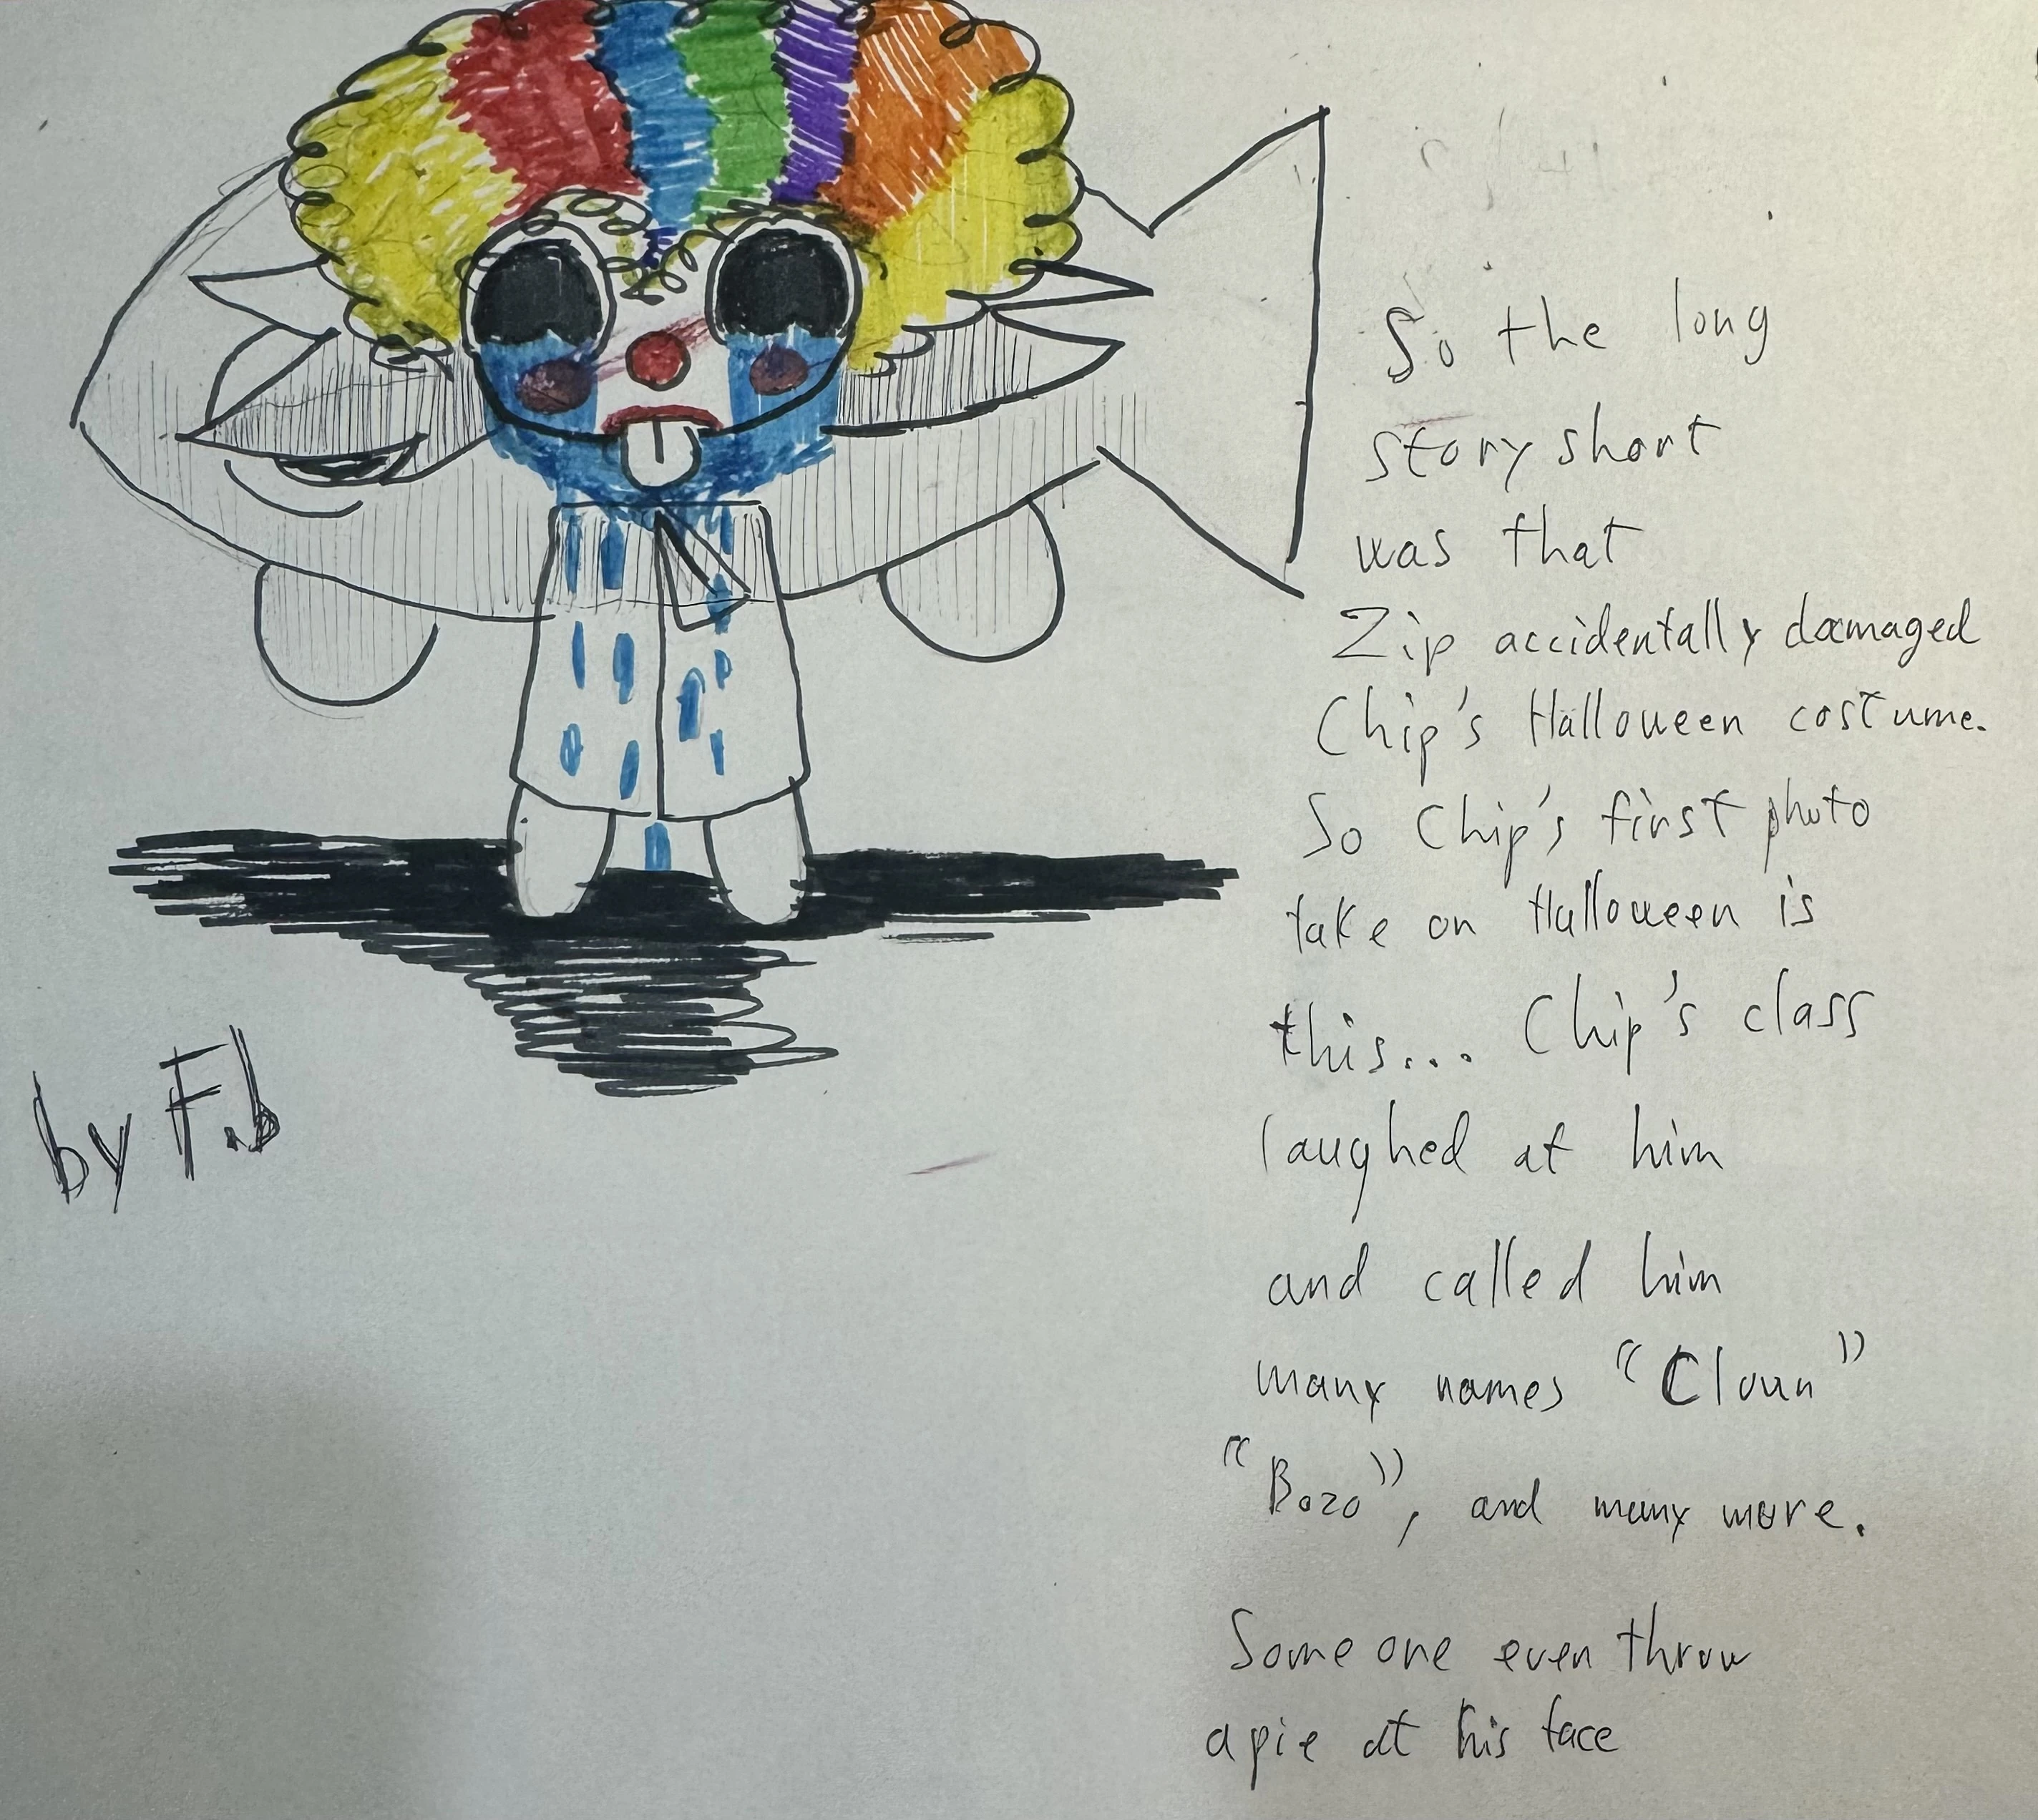 So the long
story short
was that
Zip accidentally damaged
Chip's Halloween costume.
So Chip's first photo
take on Halloween is
this... Chip's class
laughed at him
and called him
many names "Cloun"
"Bozo", and many more.
Some one even throw
a pie at his face
by F.b